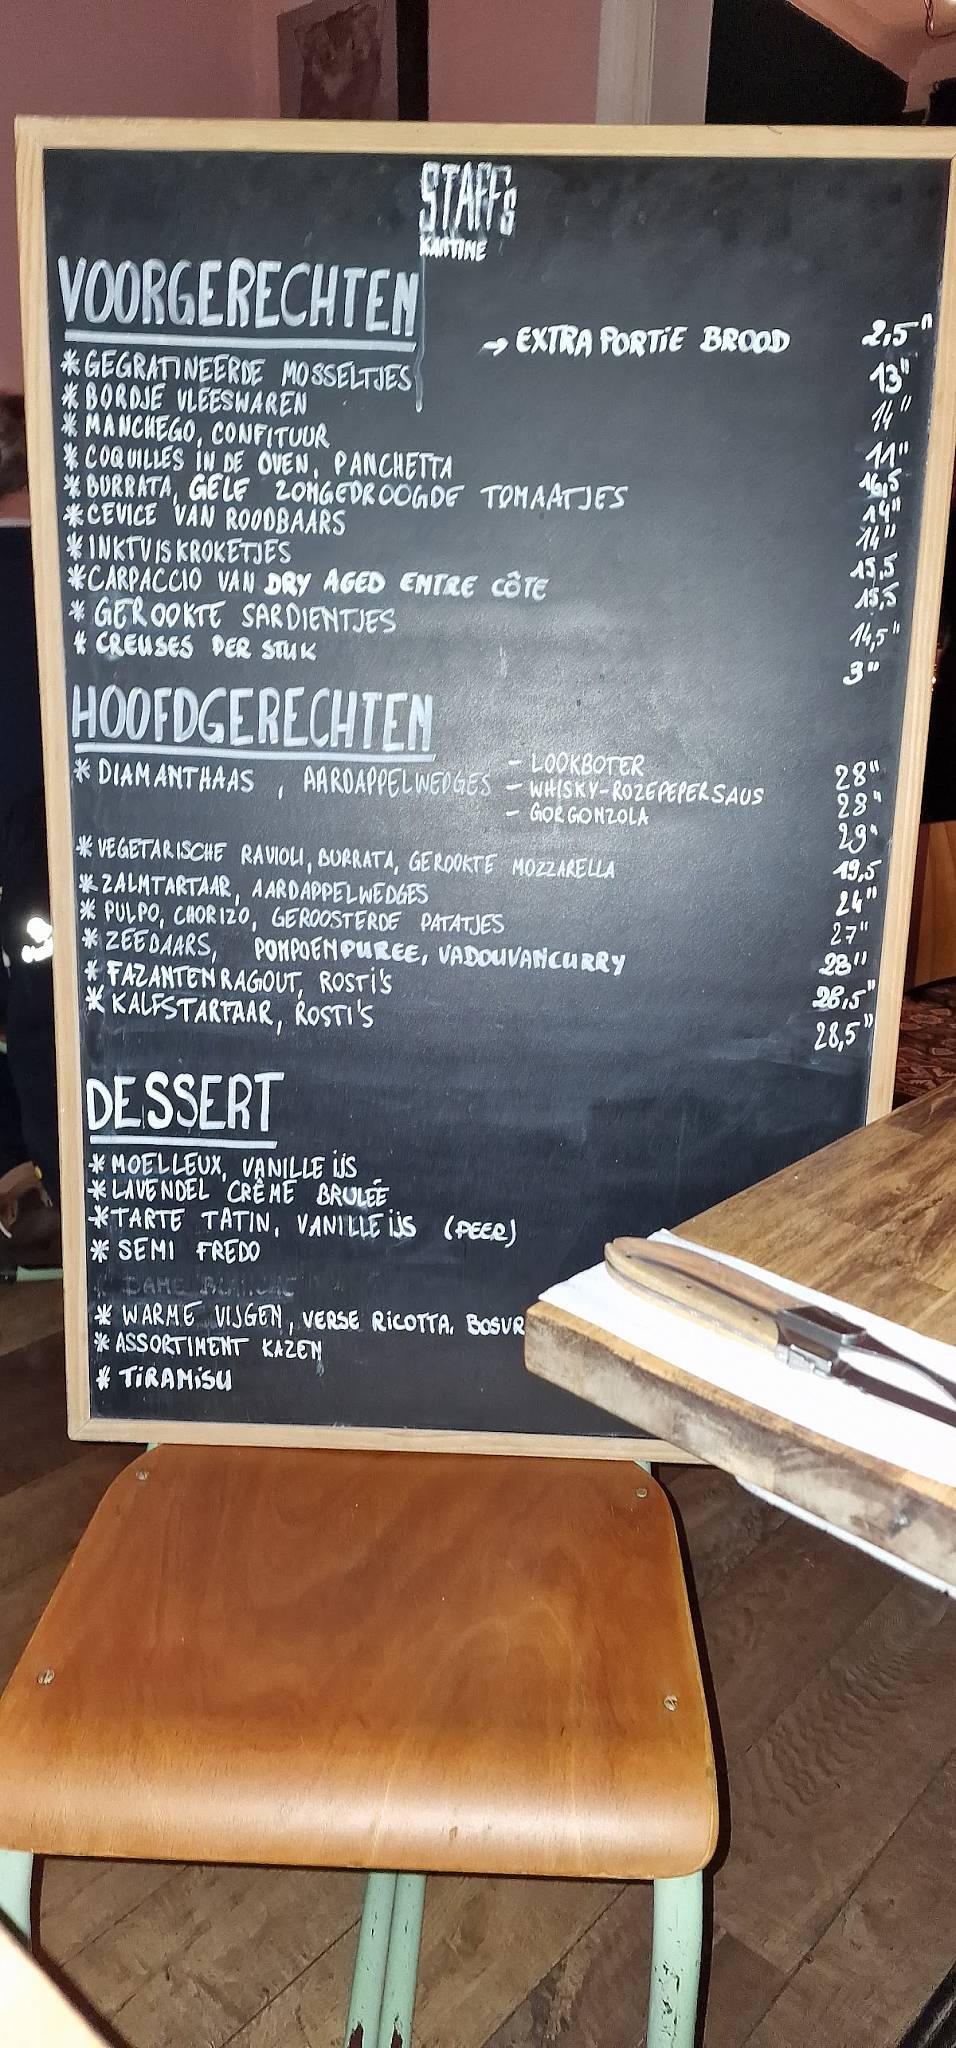 STAFFs
KANTINE
VOORGERECHTEN
→ EXTRA PORTIE BROOD 2,5"
* GEGRATINEERDE MOSSELTJES 13"
* BORDJE VLEESWAREN 14"
* MANCHEGO, CONFITUUR 11"
* COQUILLES IN DE OVEN, PANCHETTA 16,5
* BURRATA, GELE ZONGEDROOGDE TOMAATJES 14"
* CEVICE VAN ROODBAARS 14"
* INKTVISKROKETJES 15,5
* CARPACCIO VAN DRY AGED ENTRE CÔTE 15,5
* GEROOKTE SARDIENTJES 14,5"
* CREUSES PER STUK 3"
HOOFDGERECHTEN
* DIAMANTHAAS, AARDAPPELWEDGES - LOOKBOTER 28"
- WHISKY-ROZEPEPERSAUS 28"
- GORGONZOLA 29"
* VEGETARISCHE RAVIOLI, BURRATA, GEROOKTE MOZZARELLA 19,5
* ZALMTARTAAR, AARDAPPELWEDGES 24"
* PULPO, CHORIZO, GEROOSTERDE PATATJES 27"
* ZEEBAARS, POMPOENPUREE, VADOUVANCURRY 28"
* FAZANTENRAGOUT, ROSTI'S 28,5"
* KALFSTARTAAR, ROSTI'S 28,5"
DESSERT
* MOELLEUX, VANILLE IJS
* LAVENDEL CRÊME BRULÉE
* TARTE TATIN, VANILLE IJS (PEER)
* SEMI FREDO
DAME BLANCHE
* WARME VIJGEN, VERSE RICOTTA, BOSVR
* ASSORTIMENT KAZEN
* TIRAMISU